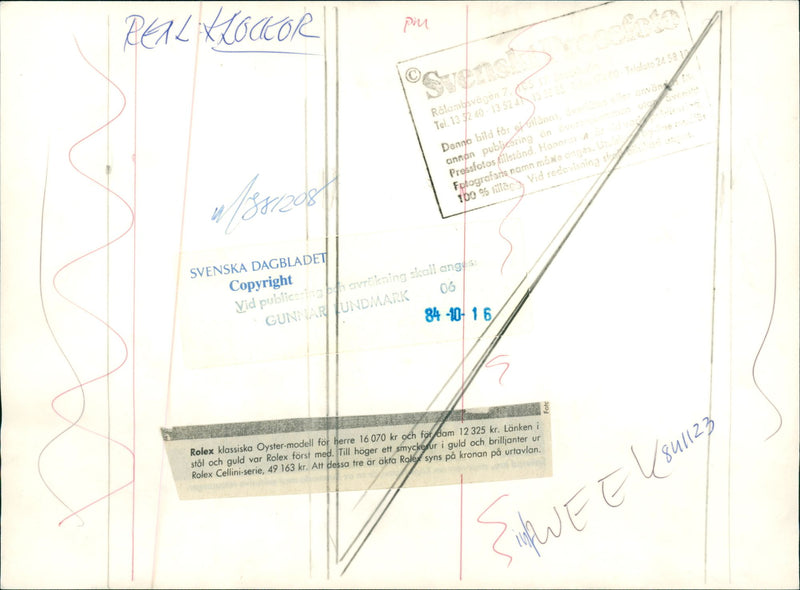 REAL KLOCKOR
PM
© Svenskt Pressfoto
Rålambsvägen 7
Tel. 13 52 60 - 13 52 61
Denna bild får ej utlånas, överlåtas eller användas för
annan publicering än
Pressfotos tillstånd. Honorar
Fotografens namn måste anges.
100 % tillägg. Vid redovisning
881208
SVENSKA DAGBLADET
Copyright
Vid publicering och avräkning skall anges:
06
GUNNAR LUNDMARK
84-10-16
Rolex klassiska Oyster-modell för herre 16 070 kr och för dam 12 325 kr. Länken i
stål och guld var Rolex först med. Till höger ett smyckesur i guld och briljanter ur
Rolex Cellini-serie, 49 163 kr. Att dessa tre är äkta Rolex syns på kronan på urtavlan.
Foto
WEEK 841123